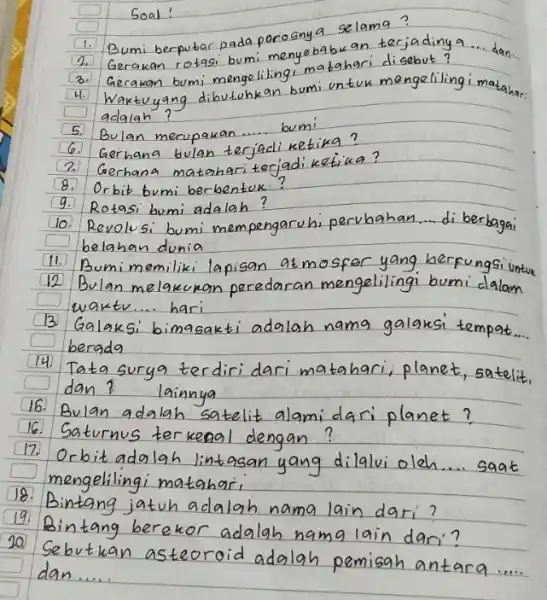 Soal!
1. Bumi berputar pada porosnya selama ?
2. Gerakan rotasi bumi menyebabkan terjadinya ... dan...
3. Gerakan bumi mengelilingi matahari disebut ?
4. Waktu yang dibutuhkan bumi untuk mengelilingi matahari
adalah ?
5. Bulan merupakan ..... bumi
6. Gerhana bulan terjadi ketika ?
7. Gerhana matahari terjadi ketika ?
8. Orbit bumi berbentuk ?
9. Rotasi bumi adalah ?
10. Revolusi bumi mempengaruhi perubahan .... di berbagai
belahan dunia
11. Bumi memiliki lapisan atmosfer yang berfungsi untuk
12 Bulan melakukan peredaran mengelilingi bumi dalam
waktu .... hari
13 Galaksi bimasakti adalah nama galaksi tempat....
berada
14) Tata surya terdiri dari matahari, planet, satelit,
dan ? lainnya
15. Bulan adalah satelit alami dari planet ?
16. Saturnus terkenal dengan ?
17. Orbit adalah lintasan yang dilalui oleh.... saat
mengelilingi matahari
18. Bintang jatuh adalah nama lain dari ?
19. Bintang berekor adalah nama lain dari ?
20 Sebutkan asteoroid adalah pemisah antara .....
dan .....